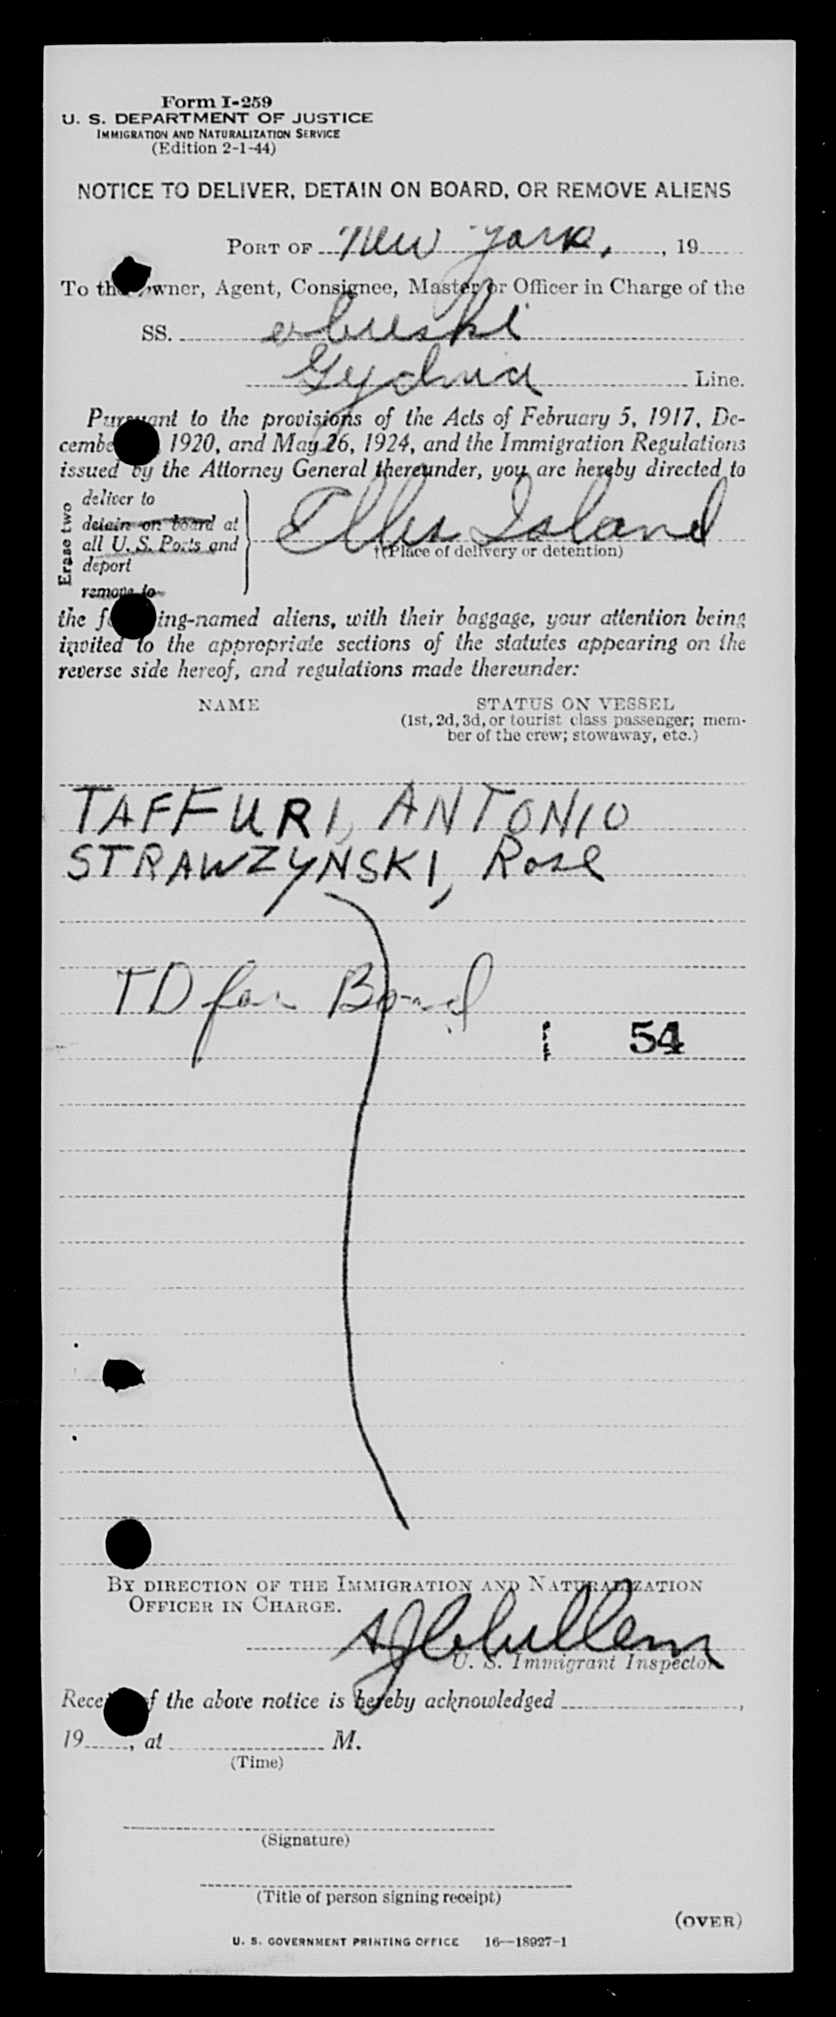 Form I-259
U. S. DEPARTMENT OF JUSTICE
IMMIGRATION AND NATURALIZATION SERVICE
(Edition 2-1-44)
NOTICE TO DELIVER, DETAIN ON BOARD, OR REMOVE ALIENS
PORT OF New York, , 19
To the Owner, Agent, Consignee, Master or Officer in Charge of the
SS.
Gydnia Line.
Pursuant to the provisions of the Acts of February 5, 1917, De-
cembe 1920, and May 26, 1924, and the Immigration Regulations
issued by the Attorney General thereunder, you are hereby directed to
Erase two
deliver to
detain on board at
all U. S. Ports and
deport
remove to
Ellis Island
†(Place of delivery or detention)
the f ing-named aliens, with their baggage, your attention being
invited to the appropriate sections of the statutes appearing on the
reverse side hereof, and regulations made thereunder:
NAME STATUS ON VESSEL
(1st, 2d, 3d, or tourist class passenger; mem-
ber of the crew; stowaway, etc.)
TAFFURI, ANTONIO
STRAWZYNSKI, Rose
TD for Bond
1 54
BY DIRECTION OF THE IMMIGRATION AND NATURALIZATION
OFFICER IN CHARGE.
U. S. Immigrant Inspector
Rece f the above notice is hereby acknowledged ,
19 , at M.
(Time)
(Signature)
(Title of person signing receipt)
(OVER)
U. S. GOVERNMENT PRINTING OFFICE 16—18927-1